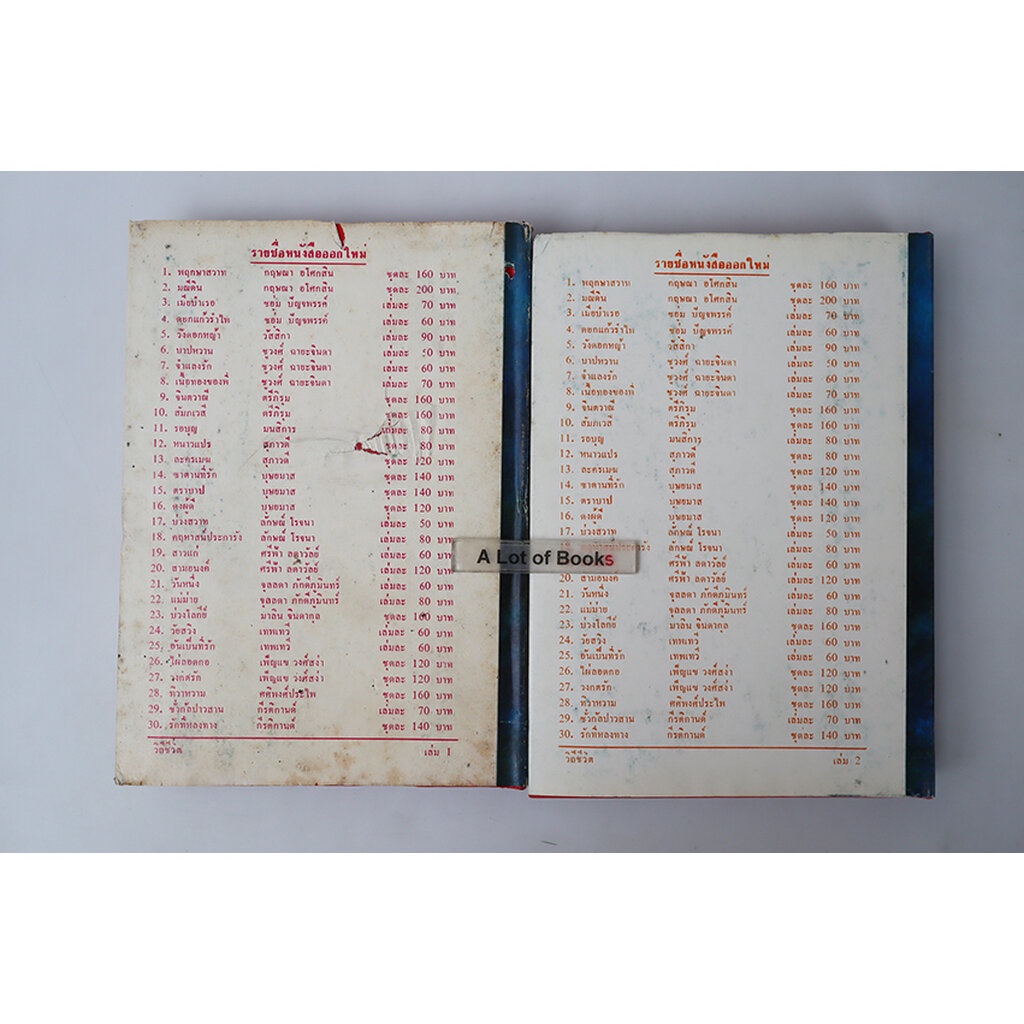 รายชื่อหนังสือออกใหม่
1. พฤกษาสวาท กฤษณา อโศกสิน ชุดละ 160 บาท
2. มณีดิน กฤษณา อโศกสิน ชุดละ 200 บาท
3. เมื่อบำเรอ ชอุ่ม ปัญจพรรค์ เล่มละ 70 บาท
4. ดอกแก้วร่ำไห้ ชอุ่ม ปัญจพรรค์ เล่มละ 60 บาท
5. วังดอกหญ้า วัสสิกา เล่มละ 90 บาท
6. บาปหวาน ชูวงศ์ ฉายะจินดา เล่มละ 50 บาท
7. จำแลงรัก ชูวงศ์ ฉายะจินดา เล่มละ 60 บาท
8. เนื้อทองของพี่ ชูวงศ์ ฉายะจินดา เล่มละ 70 บาท
9. จินตวาณี ตรีภิรุม ชุดละ 160 บาท
10. สัมภเวสี ตรีภิรุม ชุดละ 160 บาท
11. รอบุญ มนสิการ เล่มละ 80 บาท
12. หนาวแปร สุภาวดี ชุดละ 80 บาท
13. ละครเมฆ สุภาวดี ชุดละ 120 บาท
14. ซาตานที่รัก บุษยมาส ชุดละ 140 บาท
15. ตราบาป บุษยมาส ชุดละ 140 บาท
16. ดงผู้ดี บุษยมาส ชุดละ 120 บาท
17. บ่วงสวาท ลักษณ์ โรจนา เล่มละ 50 บาท
18. คฤหาสน์ประการัง ลักษณ์ โรจนา เล่มละ 80 บาท
19. สาวแก่ ศรีฟ้า ลดาวัลย์ เล่มละ 60 บาท
20. สามอนงค์ ศรีฟ้า ลดาวัลย์ ชุดละ 120 บาท
21. วันหนึ่ง จุลลดา ภักดีภูมินทร์ เล่มละ 60 บาท
22. แม่ม่าย จุลลดา ภักดีภูมินทร์ เล่มละ 80 บาท
23. บ่วงโลกีย์ มาลิน จินดากุล ชุดละ 160 บาท
24. วัยสวิง เทพเทวี เล่มละ 60 บาท
25. อันเป็นที่รัก เทพเทวี เล่มละ 60 บาท
26. ไผ่ลอดกอ เพ็ญแข วงศ์สง่า ชุดละ 120 บาท
27. วงกตรัก เพ็ญแข วงศ์สง่า ชุดละ 120 บาท
28. ทิวาหวาม ศศิพงศ์ประไพ ชุดละ 160 บาท
29. ชั่วกัลปาวสาน กีรติกานต์ เล่มละ 70 บาท
30. รักที่หลงทาง กีรติกานต์ ชุดละ 140 บาท
วิถีชีวิต เล่ม 1
A Lot of Books
รายชื่อหนังสือออกใหม่
1. พฤกษาสวาท กฤษณา อโศกสิน ชุดละ 160 บาท
2. มณีดิน กฤษณา อโศกสิน ชุดละ 200 บาท
3. เมื่อบำเรอ ชอุ่ม ปัญจพรรค์ เล่มละ 70 บาท
4. ดอกแก้วร่ำไห้ ชอุ่ม ปัญจพรรค์ เล่มละ 60 บาท
5. วังดอกหญ้า วัสสิกา เล่มละ 90 บาท
6. บาปหวาน ชูวงศ์ ฉายะจินดา เล่มละ 50 บาท
7. จำแลงรัก ชูวงศ์ ฉายะจินดา เล่มละ 60 บาท
8. เนื้อทองของพี่ ชูวงศ์ ฉายะจินดา เล่มละ 70 บาท
9. จินตวาณี ตรีภิรุม ชุดละ 160 บาท
10. สัมภเวสี ตรีภิรุม ชุดละ 160 บาท
11. รอบุญ มนสิการ เล่มละ 80 บาท
12. หนาวแปร สุภาวดี ชุดละ 80 บาท
13. ละครเมฆ สุภาวดี ชุดละ 120 บาท
14. ซาตานที่รัก บุษยมาส ชุดละ 140 บาท
15. ตราบาป บุษยมาส ชุดละ 140 บาท
16. ดงผู้ดี บุษยมาส ชุดละ 120 บาท
17. บ่วงสวาท ลักษณ์ โรจนา เล่มละ 50 บาท
ลักษณ์ โรจนา เล่มละ 80 บาท
ศรีฟ้า ลดาวัลย์ เล่มละ 60 บาท
20. สามอนงค์ ศรีฟ้า ลดาวัลย์ ชุดละ 120 บาท
21. วันหนึ่ง จุลลดา ภักดีภูมินทร์ เล่มละ 60 บาท
22. แม่ม่าย จุลลดา ภักดีภูมินทร์ เล่มละ 80 บาท
23. บ่วงโลกีย์ มาลิน จินดากุล ชุดละ 160 บาท
24. วัยสวิง เทพเทวี เล่มละ 60 บาท
25. อันเป็นที่รัก เทพเทวี เล่มละ 60 บาท
26. ไผ่ลอดกอ เพ็ญแข วงศ์สง่า ชุดละ 120 บาท
27. วงกตรัก เพ็ญแข วงศ์สง่า ชุดละ 120 บาท
28. ทิวาหวาม ศศิพงศ์ประไพ ชุดละ 160 บาท
29. ชั่วกัลปาวสาน กีรติกานต์ เล่มละ 70 บาท
30. รักที่หลงทาง กีรติกานต์ ชุดละ 140 บาท
วิถีชีวิต เล่ม 2